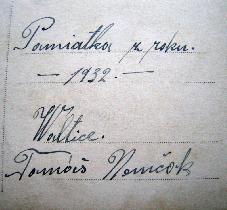 Pamiatka z roku.
— 1932. —
Waltice.
Tomáš Nemčok